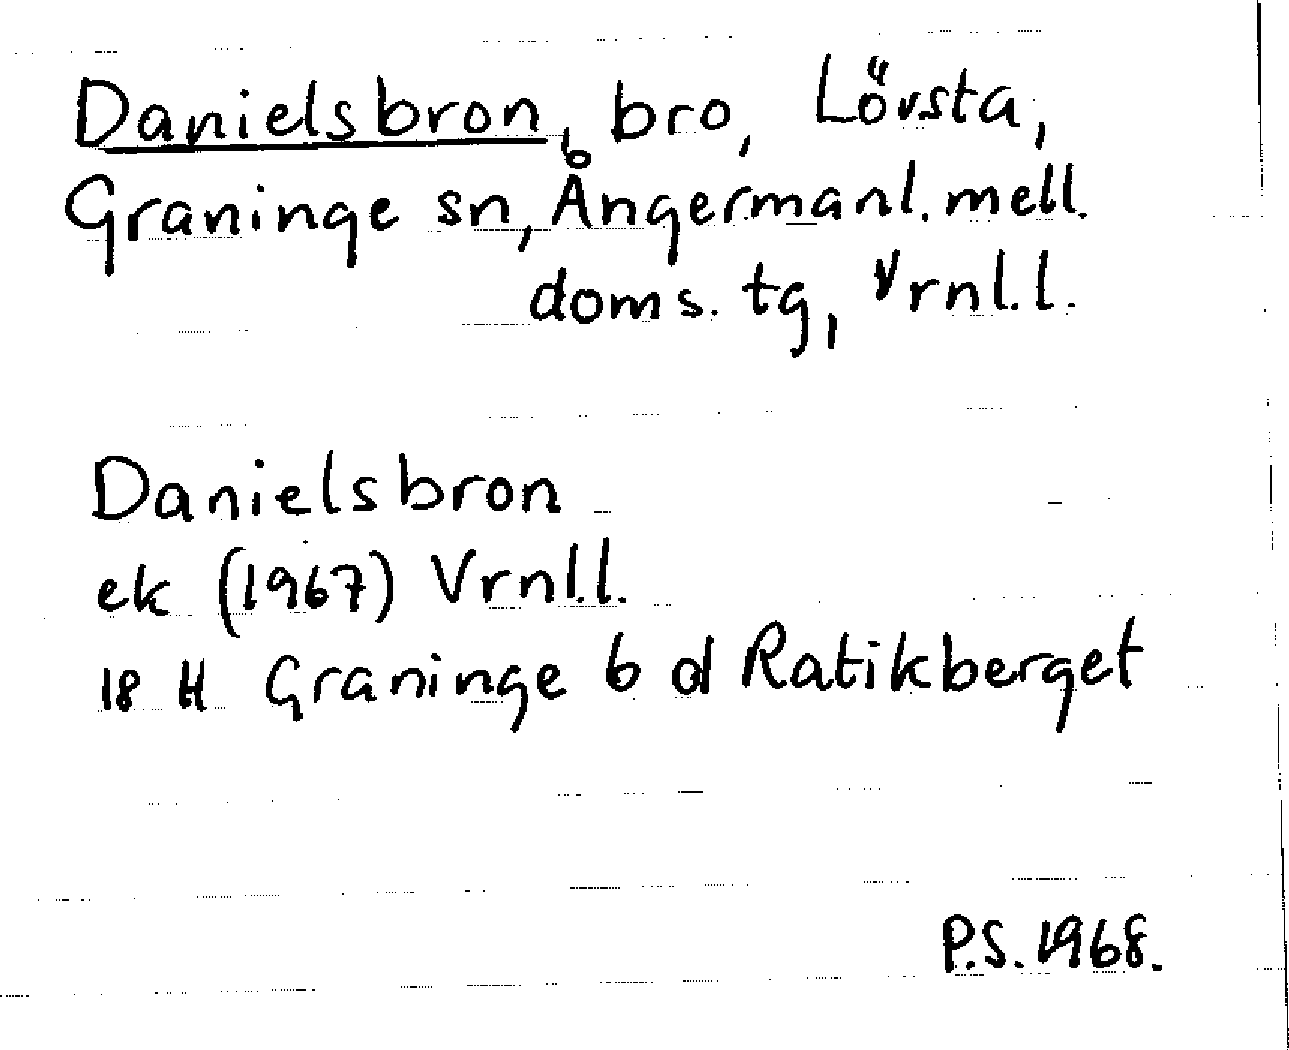 Danielsbron, bro, Lövsta,
Graninge sn, Ångermanl. mell.
doms. tg, Vrnl.l.
Danielsbron
ek (1967) Vrnl.l.
18 H Graninge 6 d Ratikberget
P.S. 1968.